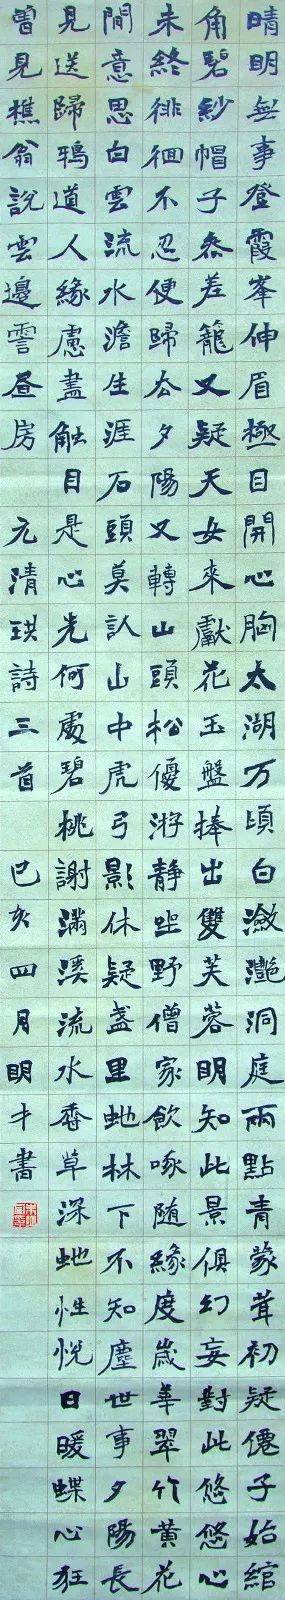 晴明無事登霞峯伸眉極目開心胸太湖万頃白瀲灔洞庭兩點青蒙茸初疑僊子始綰
角碧紗帽子叅差籠又疑天女來獻花玉盤捧出雙芙蓉明知此景俱幻妄對此悠悠心
未終徘徊不忍便歸去夕陽又轉山頭松優游靜坐野僧家飲啄随緣度歲華翠竹黃花
閒意思白雲流水澹生涯石頭莫认山中虎弓影休疑盞里虵林下不知塵世事夕陽長
見送歸鴉道人緣慮盡觸目是心光何處碧桃謝滿溪流水香草深虵性悅日暖蝶心狂
曾見樵翁說雲邊霅昼房 元清珙詩三首 己亥四月明才書